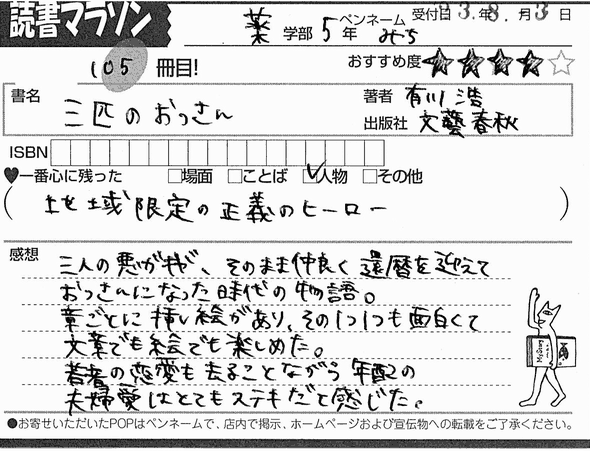 読書マラソン
薬 学部 5 年 ペンネーム みち 受付日 23.年8.月3日
105 冊目!
おすすめ度 ★★★★☆
書名 三匹のおっさん
著者 有川 浩
出版社 文藝春秋
ISBN
♥一番心に残った □場面 □ことば ☑人物 □その他
(地域限定の正義のヒーロー)
感想
三人の悪ガキが、そのまま仲良く還暦を迎えて
おっさんになった時代の物語。
章ごとに挿し絵があり、その1つ1つも面白くて
文章でも絵でも楽しめた。
若者の恋愛も去ることながら年配の
夫婦愛はとてもステキだと感じた。
●お寄せいただいたPOPはペンネームで、店内で掲示、ホームページおよび宣伝物への転載をご了承ください。